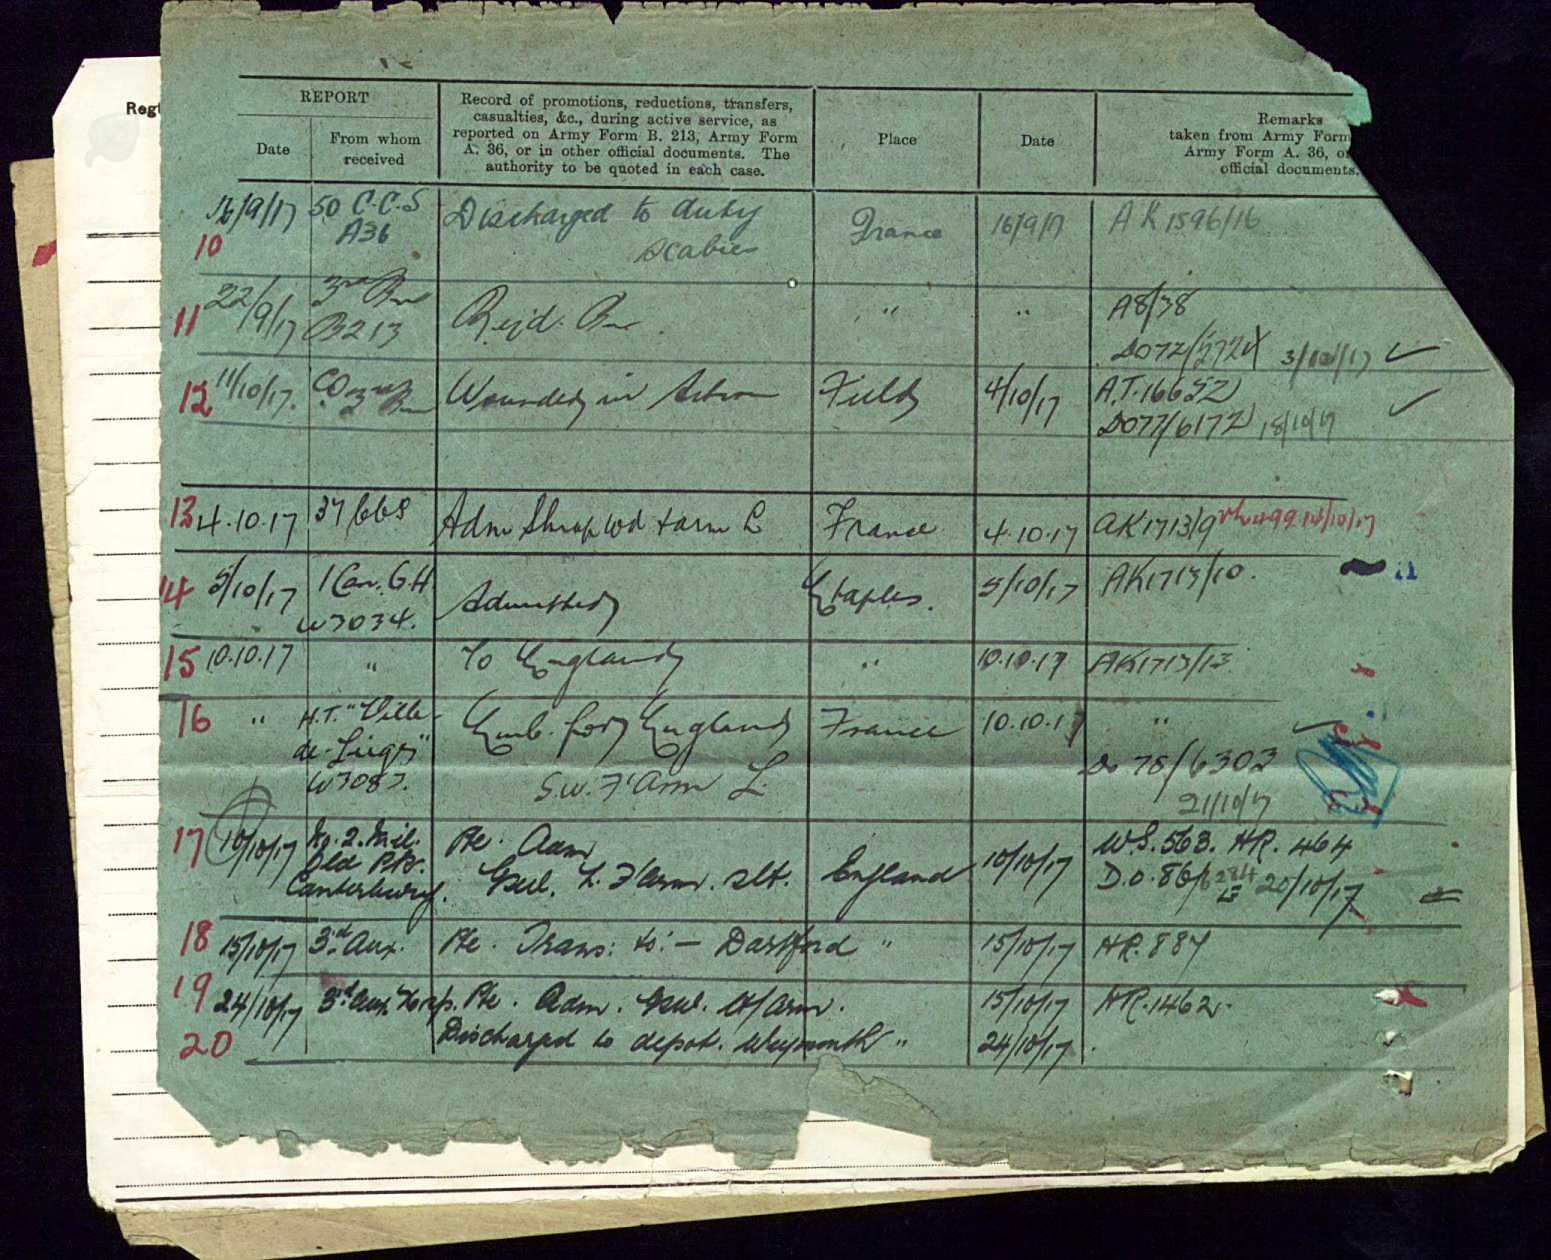 Regt
REPORT
Date
From whom
received
Record of promotions, reductions, transfers,
casualties, &c., during active service, as
reported on Army Form B. 213, Army Form
A. 36, or in other official documents. The
authority to be quoted in each case.
Place
Date
Remarks
taken from Army Form
Army Form A. 36, o
official documents.
16/9/17 50 C.C.S Discharged to duty France 16/9/17 AK 1596/16
10 A36 scabies
22/9/17 3rd Bn Rejd. Bn " " A8/78
11 B213 3/10/17
12 11/10/17. CO Wounded in Action Field 4/10/17 A.T.16652
DO77/6172 18/10/17
13 4.10.17 37 CCS Adm Shrap wd Farm L France 4.10.17 AK1713/9
14 5/10/17 1 Can. G.H Admitted Etaples. 5/10/17 AK1713/10.
W3034.
15 10.10.17 " To England " 10.10.17 AK1713/13
16 " H.T. "Ville Emb. for England France 10.10.17 "
de Liege" Do 78/6302
W3083. S.W. F'Arm L. 21/10/17
17 10/10/17 No. 2. Mil. Re. Adm
Canterbury. Gsw. L. F'arm. slt. England 10/10/17 W.S. 563. HR. 464
D.O. 86/ 20/10/17
18 15/10/17 3rd Aux. Re. Trans: to:— Dartford " 15/10/17 HR. 887
19 24/10/17 3rd Aux Hosp. Re. Adm. Gsw. lt/arm. 15/10/17 HR. 1462.
20 Discharged to depot. Weymouth " 24/10/17